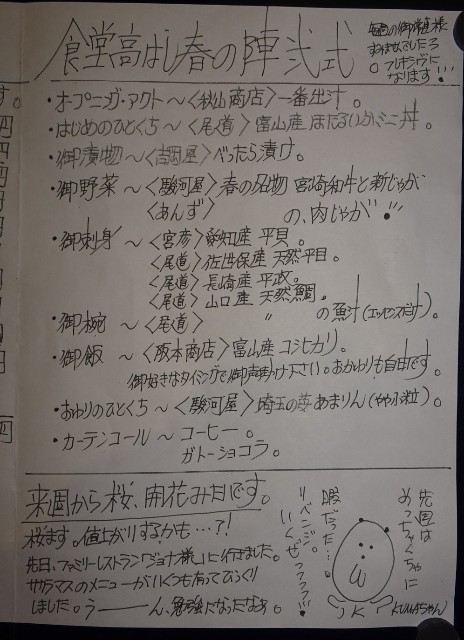 食堂高はし春の陣 弐式
・オープニング・アクト～〈秋山商店〉一番出汁。
・はじめのひとくち～〈尾道〉富山産ほたるいかミニ丼。
・御漬物～〈吉岡屋〉べったら漬け。
・御野菜～〈駿河屋〉春の名物 宮崎和牛と新じゃが
〈あんず〉の、肉じゃが!!
・御刺身～〈宮彦〉愛知産 平貝。
〈尾道〉佐世保産 天然平目。
〈尾道〉長崎産 平政。
〈尾道〉山口産 天然鯛。
・御椀～〈尾道〉 〃 の魚汁(エッセンスだけ)。
・御飯～〈阪本商店〉富山産 コシヒカリ。
御好きなタイミングで御声掛け下さい。おかわりも自由です。
・おわりのひとくち～〈駿河屋〉埼玉の苺 あまりん(やや小粒)。
・カーテンコール～コーヒー。
ガトーショコラ。
来週から桜、開花み日です。
桜ます。値上がりするかも…?!
先日、ファミリーレストラン「ジョナ様」に行きました。
サクラマスのメューがいくつも有ってびっくり
しました。うーーん、勉強になったなぁ。
先週は
めっちゃくちゃに
暇だった…。
リベンジ。
いくぜっフフフッ!!
KUMAちゃん